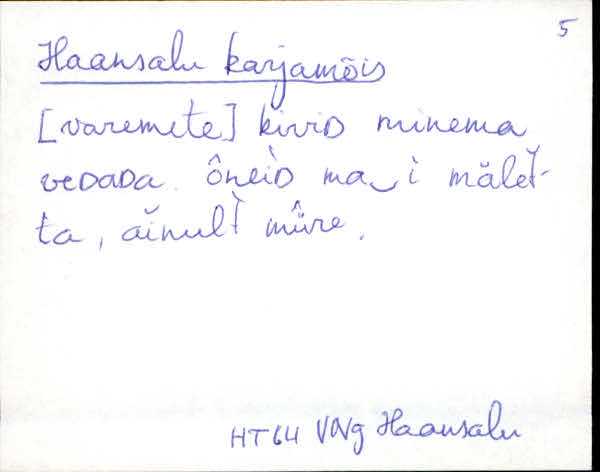 5
Haansalu karjamõis
[varemete] kiviD minema
veDaDa. ôneìD ma‿ì mälèt̆-
ta, ăinult̀ mûre.
HT64 VNg Haansalu